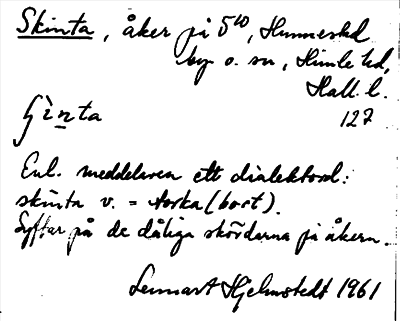 Skinta, åker på 5¹⁰, Hunnestad
by o. sn, Himle hd,
Hall. l.
127
ʃìnta
Enl. meddelaren ett dialektord:
skinta v. = torka (bort).
Syftar på de dåliga skördarna på åkern.
Lennart Hjelmstedt 1961